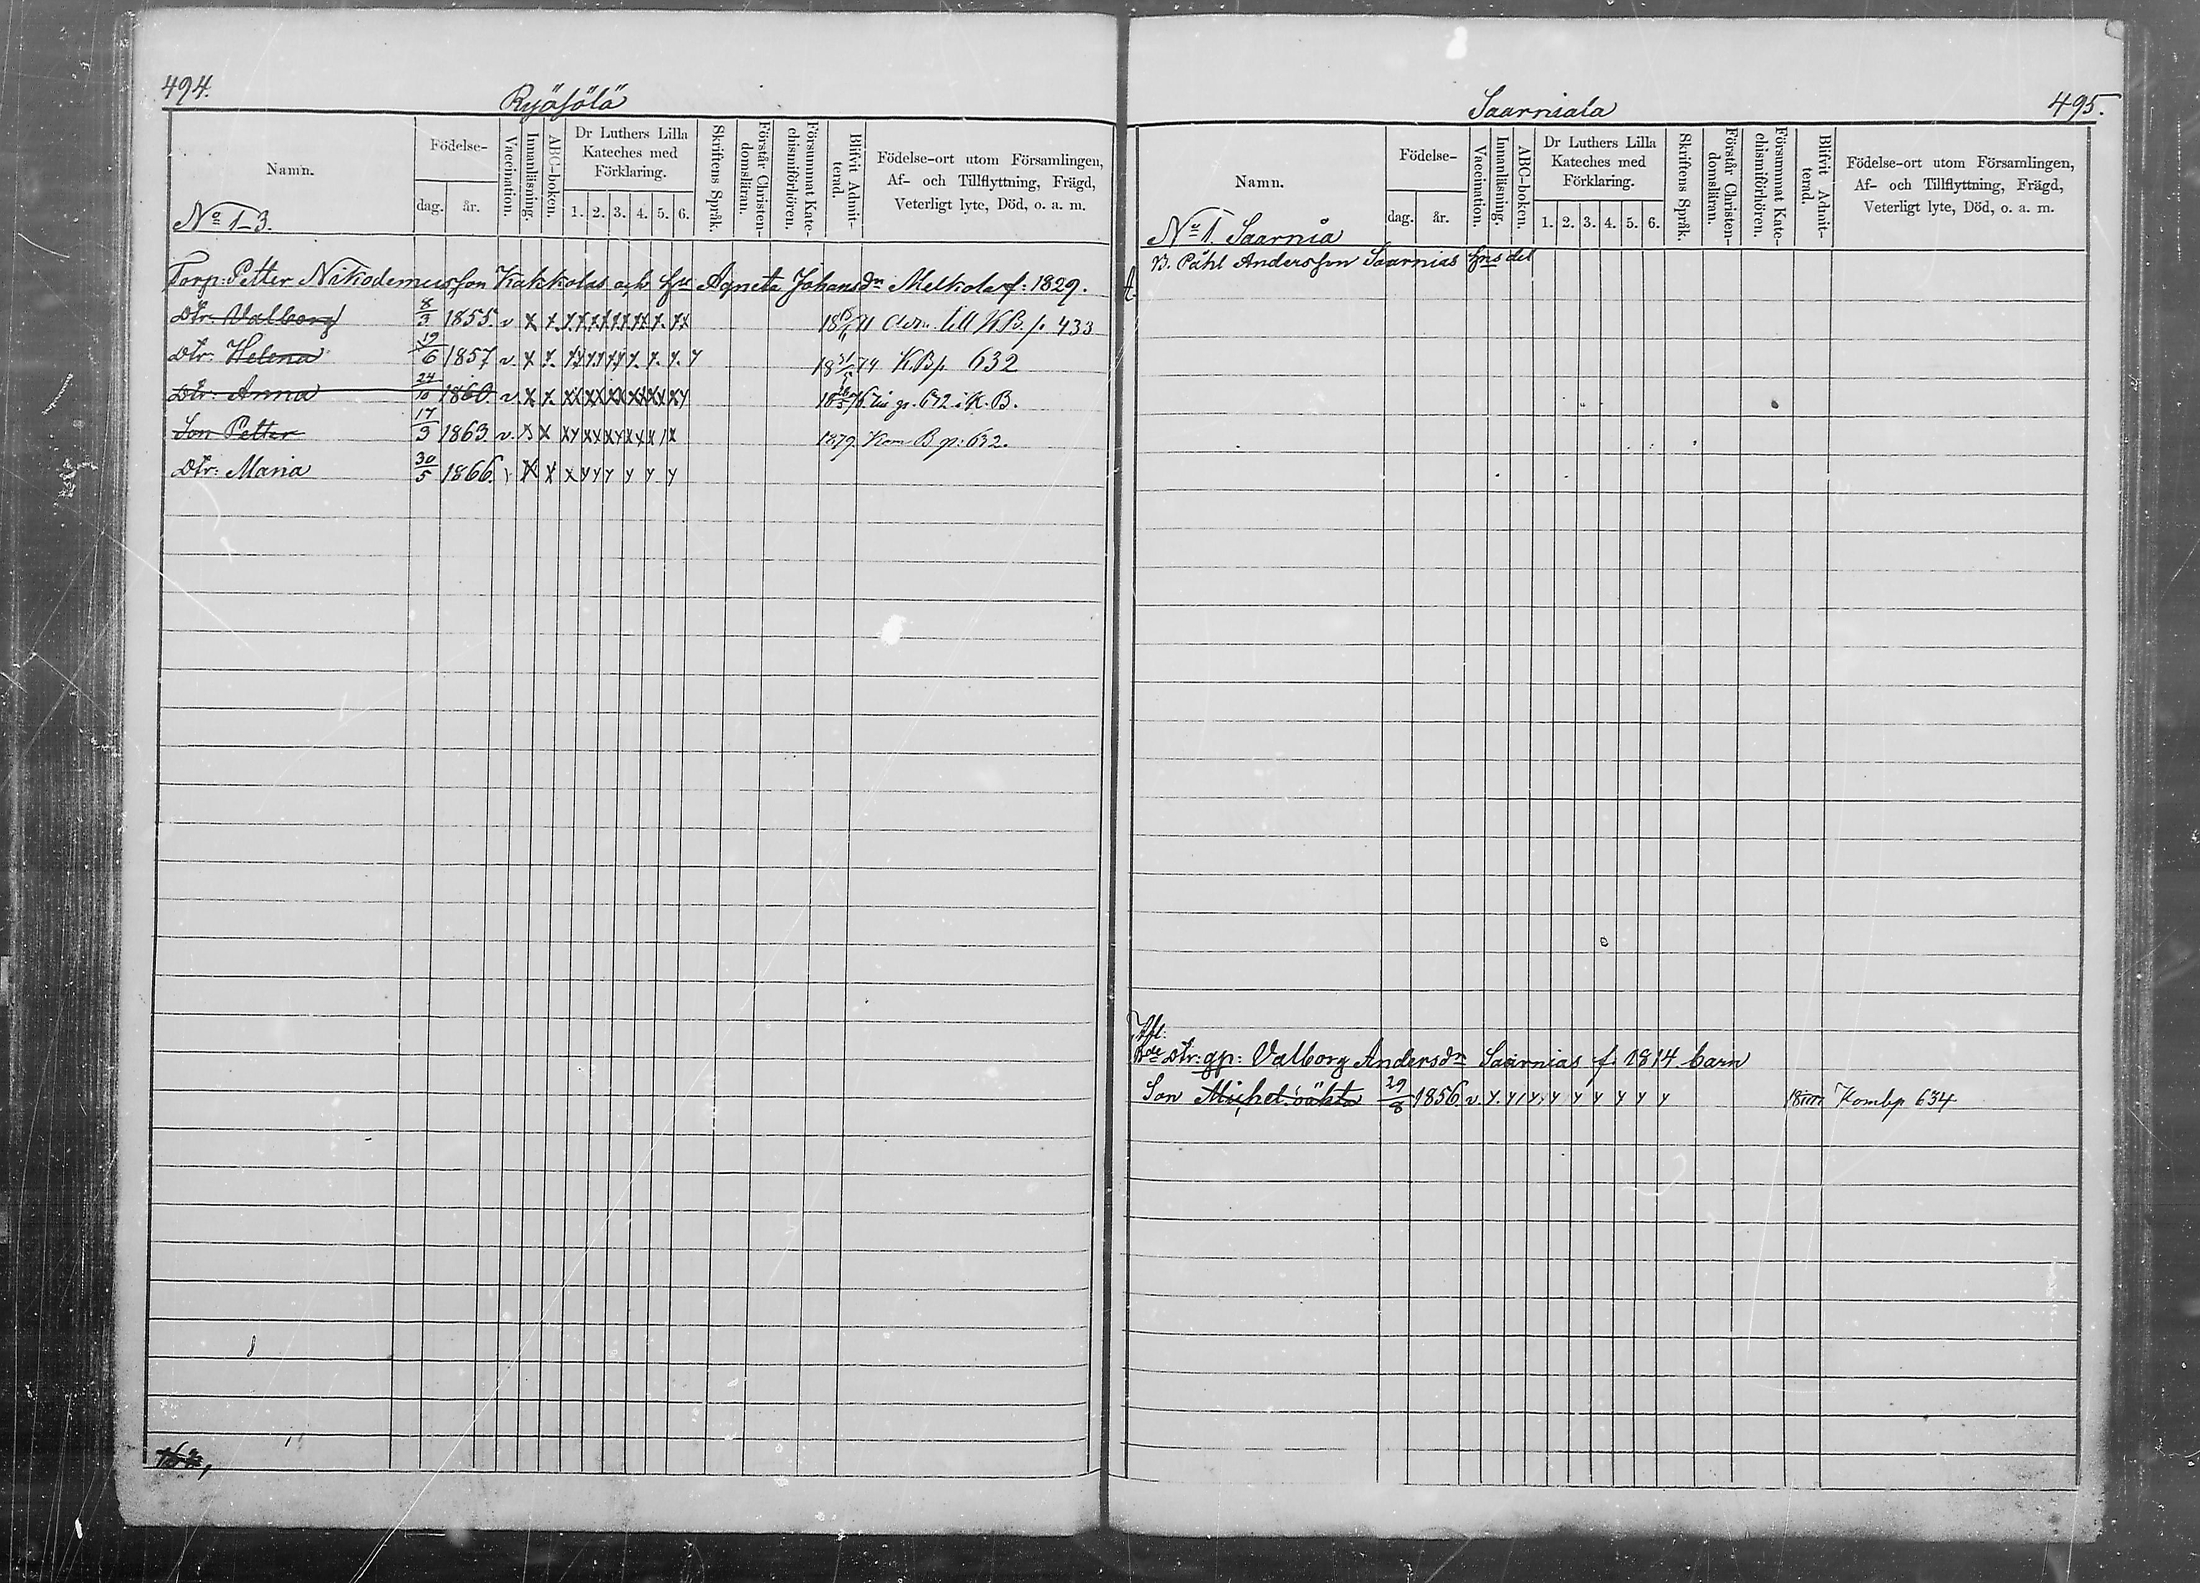 494.
Ryösölä
Namn.
Födelse-
dag. år.
Vaccination.
Innanläsning.
ABC-boken.
Dr Luthers Lilla
Kateches med
Förklaring.
1. 2. 3. 4. 5. 6.
Skriftens Språk.
Förstår Christen-
domsläran.
Försummat Kate-
chismiförhören.
Blifvit Admit-
terad.
Födelse-ort utom Församlingen,
Af- och Tillflyttning, Frägd,
Veterligt lyte, Död, o. a. m.
No 1-3.
Torp: Petter Nikodemusson Kakkolas och hu Agneta Johansdn Melkola f: 1829.
Dtr: Valborg 8/3 1855. v x x 71 till K.B. p. 433
Dtr: Helena 19/6 1857 v. x x. 74 K.B.p. 632
Dtr: Anna 24/10 1860 v. x x. 76 672 i K. B.
Son Petter 17/3 1863. v. x 1879. Kom B p: 632.
Dtr: Maria 30/5 1866. x x x y y y y y y
495.
Saarniala
Namn.
Födelse-
dag. år.
Vaccination.
Innanläsning.
ABC-boken.
Dr Luthers Lilla
Kateches med
Förklaring.
1. 2. 3. 4. 5. 6.
Skriftens Språk.
Förstår Christen-
domsläran.
Försummat Kate-
chismiförhören.
Blifvit Admit-
terad.
Födelse-ort utom Församlingen,
Af- och Tillflyttning, Frägd,
Veterligt lyte, Död, o. a. m.
No 1. Saarnia
B. Påhl Andersson Saarnias hns del
A.
Hfl:
Bde dtr: gp: Valborg Andersdn Saarnias f. 1814 barn
Son Michel 29/8 1856. v. y. y y y y y y y y Kombp 634